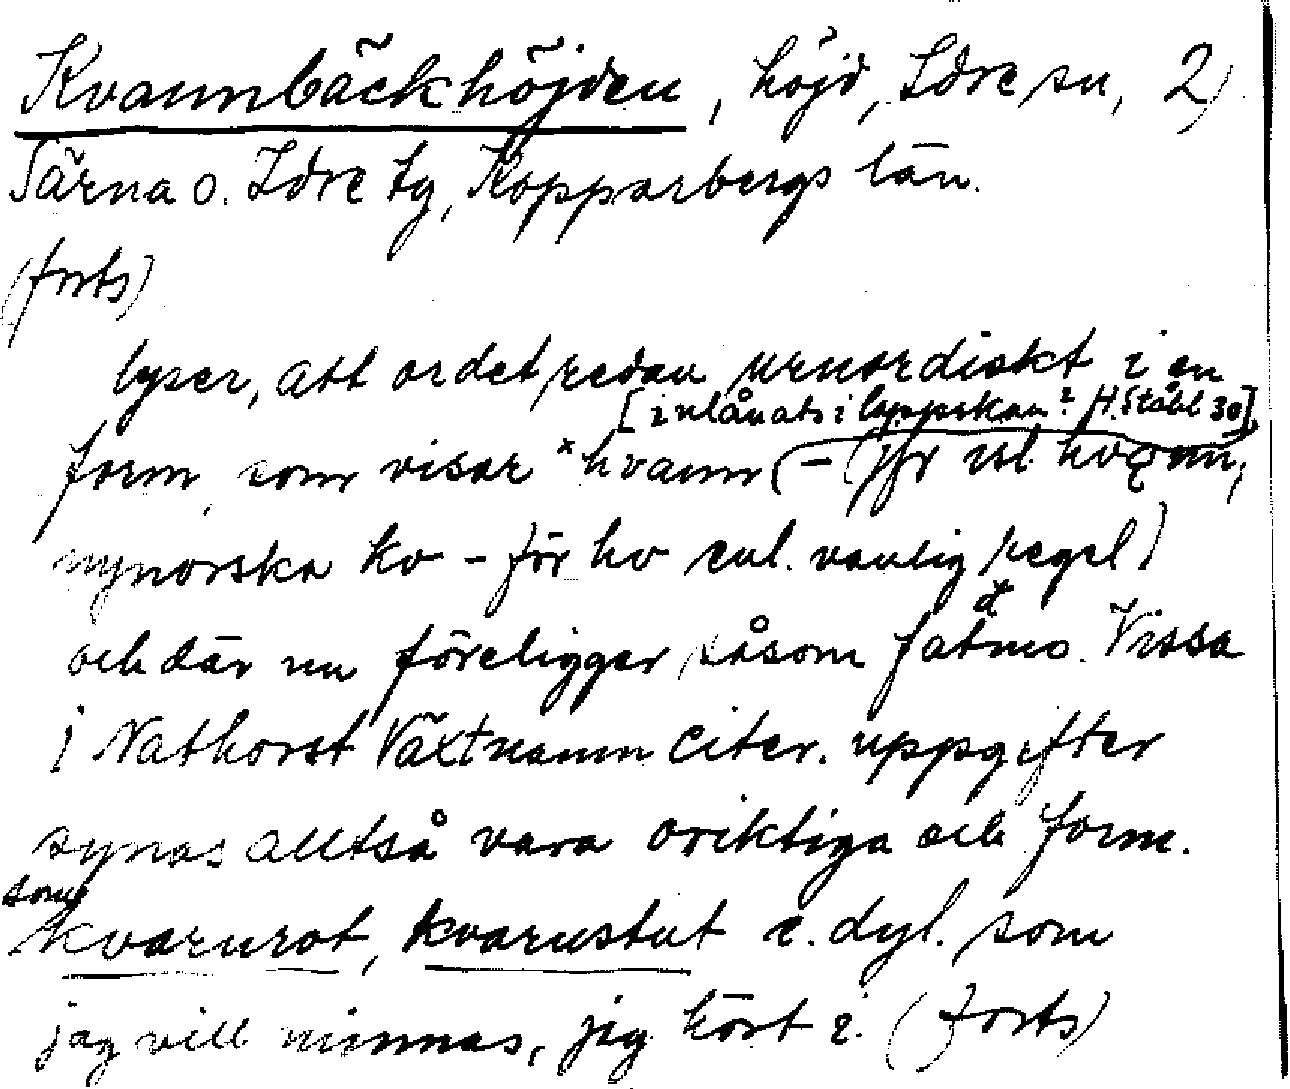 Kvannbäckhöjden, höjd, Idre sn, 2)
Särna o. Idre tg, Kopparbergs län.
(forts)
lyser, att ordet, redan urnordiskt i en
[inlånats i lappskan? H. Ståhl 30]
form, som visar *hvann (- (jfr isl. hvǫnn,
nynorska kv - för hv enl. vanlig regel)
och där nu föreligger såsom fatno. Vissa
i Nathorst Växtnamn citer. uppgifter
synas alltså vara oriktiga och form.
som
kvarnrot, kvarnstut o. dyl. som
jag vill minnas, jag hört i. (forts)